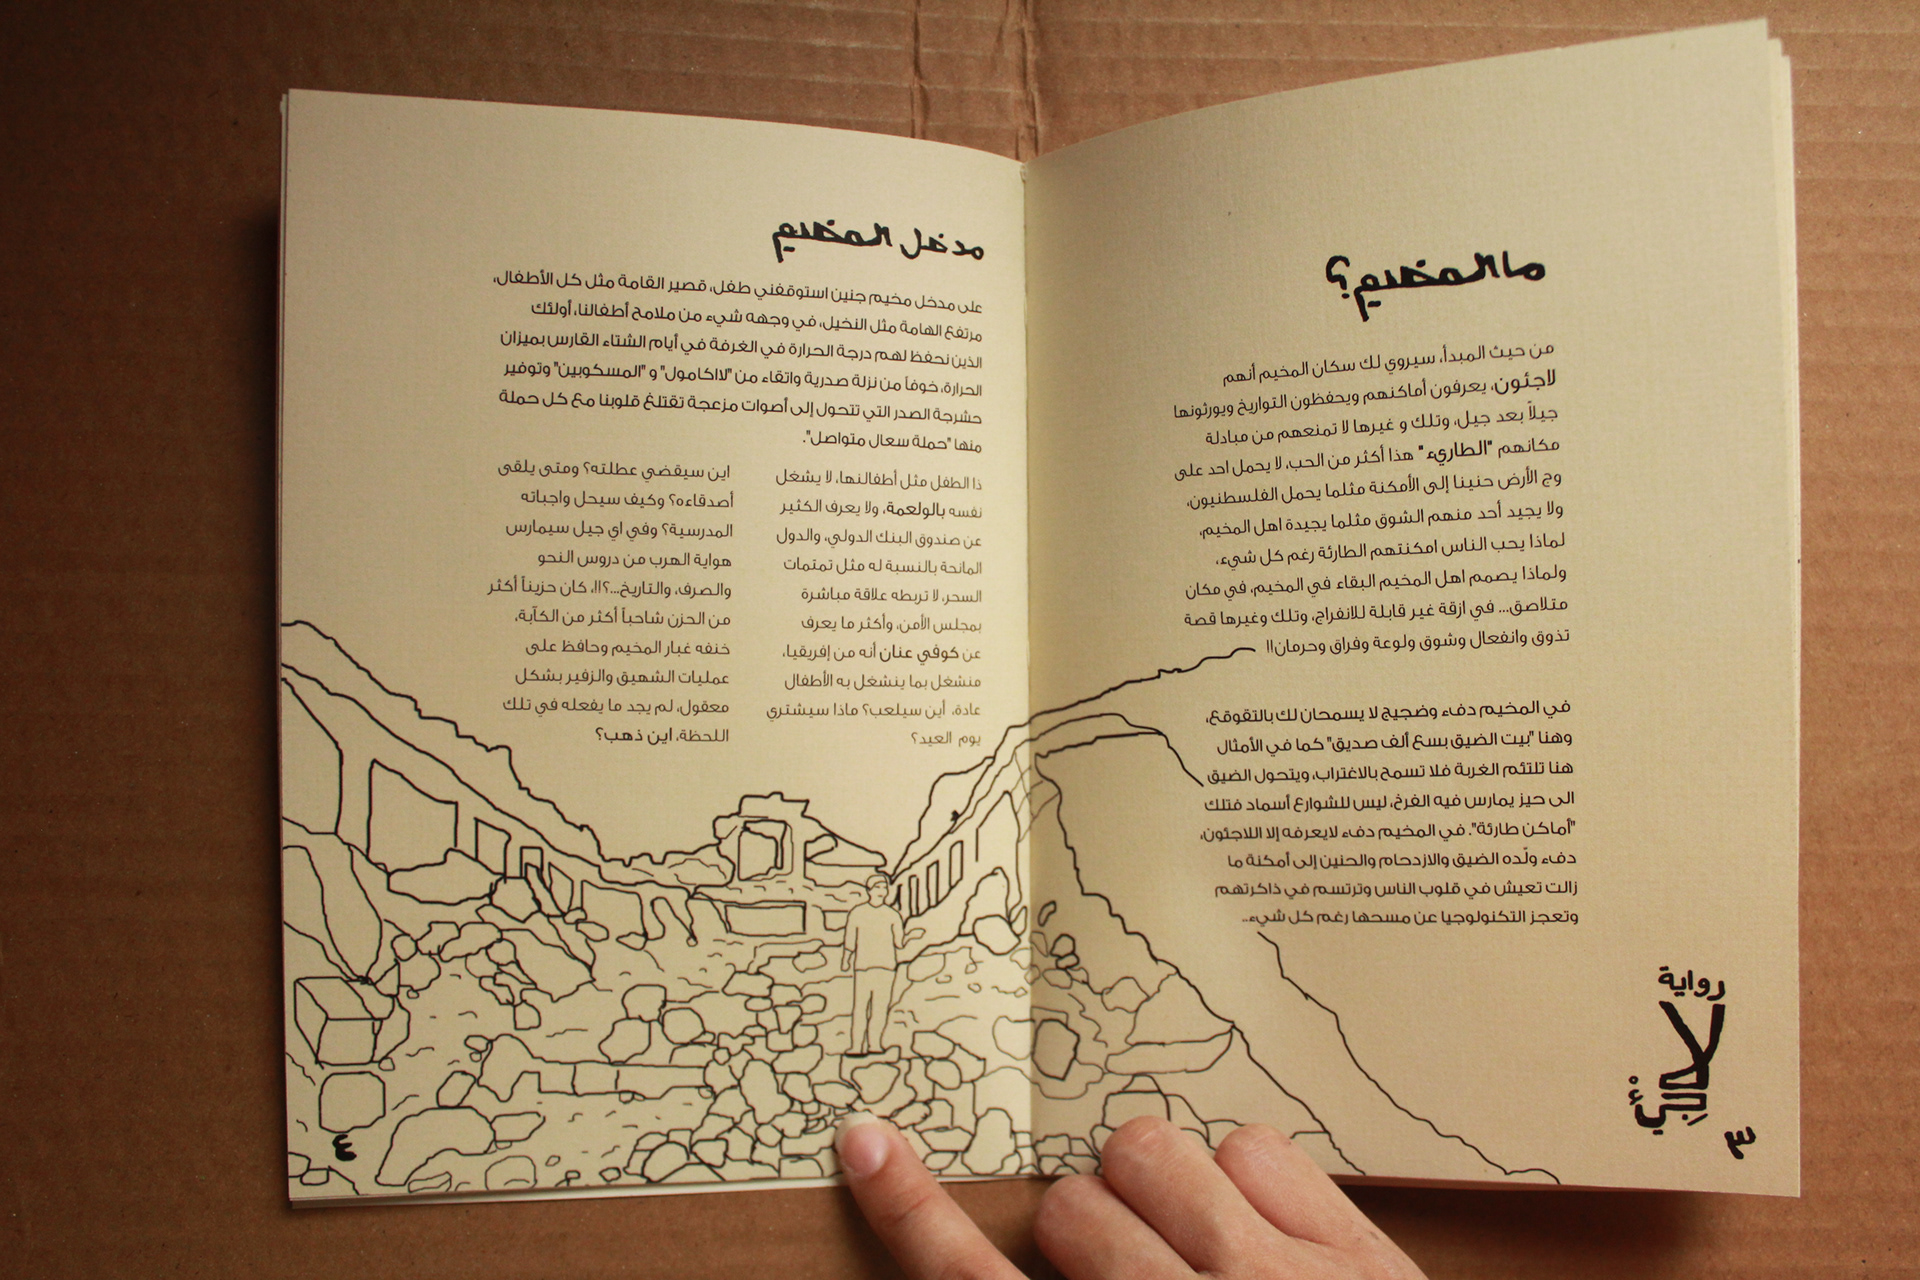 ما المخيم؟
من حيث المبدأ، سيروي لك سكان المخيم أنهم
لاجئون، يعرفون أماكنهم ويحفظون التواريخ ويورثونها
جيلاً بعد جيل، وتلك و غيرها لا تمنعهم من مبادلة
مكانهم "الطاريء" هذا أكثر من الحب، لا يحمل احد على
وج الأرض حنينا إلى الأمكنة مثلما يحمل الفلسطنيون،
ولا يجيد أحد منهم الشوق مثلما يجيدة اهل المخيم،
لماذا يحب الناس امكنتهم الطارئة رغم كل شيء،
ولماذا يصمم اهل المخيم البقاء في المخيم، في مكان
متلاصق... في ازقة غير قابلة للانفراج، وتلك وغيرها قصة
تذوق وانفعال وشوق ولوعة وفراق وحرمان!!
في المخيم دفء وضجيج لا يسمحان لك بالتقوقع،
وهنا "بيت الضيق بسع ألف صديق" كما في الأمثال
هنا تلتئم الغربة فلا تسمح بالاغتراب، ويتحول الضيق
الى حيز يمارس فيه الفرخ، ليس للشوارع أسماد فتلك
"أماكن طارئة". في المخيم دفء لايعرفه إلا اللاجئون،
دفء ولّده الضيق والازدحام والحنين إلى أمكنة ما
زالت تعيش في قلوب الناس وترتسم في ذاكرتهم
وتعجز التكنولوجيا عن مسحها رغم كل شيء..
رواية
٣
مدخل المخيم
على مدخل مخيم جنين استوقفني طفل، قصير القامة مثل كل الأطفال،
مرتفع الهامة مثل النخيل، في وجهه شيء من ملامح أطفالنا، أولئك
الذين نحفظ لهم درجة الحرارة في الغرفة في أيام الشتاء القارس بميزان
الحرارة، خوفاً من نزلة صدرية واتقاء من "لااكامول" و "المسكوبين" وتوفير
حشرجة الصدر التي تتحول إلى أصوات مزعجة تقتلغ قلوبنا مع كل حملة
منها "حملة سعال متواصل".
ذا الطفل مثل أطفالنها، لا يشغل
نفسه بالولعمة، ولا يعرف الكثير
عن صندوق البنك الدولي، والدول
المانحة بالنسبة له مثل تمتمات
السحر، لا تربطه علاقة مباشرة
بمجلس الأمن، وأكثر ما يعرف
عن كوفي عنان أنه من إفريقيا،
منشغل بما ينشغل به الأطفال
عادة، أين سيلعب؟ ماذا سيشتري
يوم العيد؟
اين سيقضي عطلته؟ ومتى يلقى
أصدقاءه؟ وكيف سيحل واجباته
المدرسية؟ وفي اي جيل سيمارس
هواية الهرب من دروس النحو
والصرف، والتاريخ...؟!!، كان حزيناً أكثر
من الحزن شاحباً أكثر من الكآبة،
خنفه غبار المخيم وحافظ على
عمليات الشهيق والزفير بشكل
معقول، لم يجد ما يفعله في تلك
اللحظة، اين ذهب؟
٤